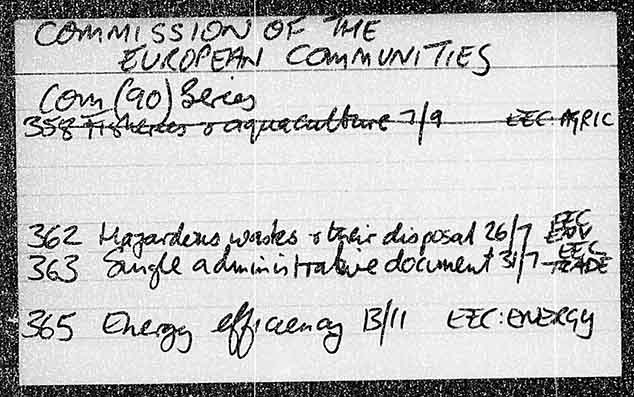 COMMISSION OF THE
EUROPEAN COMMUNITIES
Com (90) Series
358 Fisheries & aquaculture 7/9 EEC: AGRIC
362 Hazardous wastes & their disposal 26/7 EEC ENV
363 Single administrative document 31/7 EEC TRADE
365 Energy efficiency 13/11 EEC: ENERGY